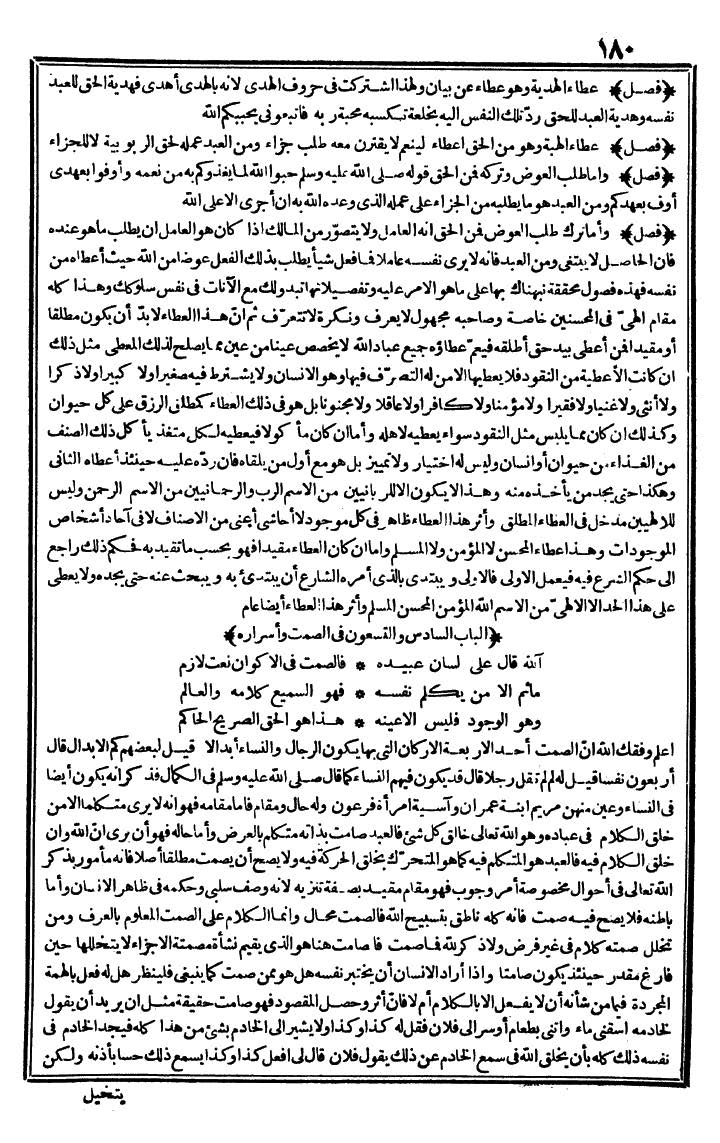 ١٨٠
﴿فصل﴾ عطاء الهدية وهو عطاء عن بيان ولهذا اشتركت في حروف الهدى لانه بالهدى أهدى فهدية الحق للعبد
نفسه وهدية العبد للحق ردّ تلك النفس اليه بخلعة تكسبه محبة ربه فاتبعوني يحببكم الله
﴿فصل﴾ عطاء الهبة وهو من الحق اعطاء لينعم لا يقترن معه طلب جزاء ومن العبد عمله لحق الربوبية لا للجزاء
﴿فصل﴾ واما طلب العوض وتركه فمن الحق قوله صلى الله عليه وسلم حبوا الله لما يغذوكم به من نعمه وأوفوا بعهدى
أوف بعهدكم ومن العبد هو ما يطلبه من الجزاء على عمله الذى وعده الله به ان أجرى الا على الله
﴿فصل﴾ وأما ترك طلب العوض فمن الحق انه العامل ولا يتصوّر من المالك اذا كان هو العامل ان يطلب ما هو عنده
فان الحاصل لا يبتغى ومن العبد فانه لا يرى نفسه عاملا فما فعل شيأ يطلب بذلك الفعل عوضا من الله حيث أعطاه من
نفسه فهذه فصول محققة نبهناك بها على ما هو الامر عليه وتفصيلاتها تبدولك مع الآنات في نفس سلوكك وهذا كله
مقام الهىّ في المحسنين خاصة وصاحبه مجهول لا يعرف ونكرة لا تتعرّف ثم انّ هذا العطاء لا بدّ أن يكون مطلقا
أو مقيدا فمن أعطى بيد حق أطلقه فيعم عطاؤه جميع عباد الله لا يخصص عينا من عين مما يصلح لذلك المعطى مثل ذلك
ان كانت الأعطية من النقود فلا يعطيها الا من له التصرّف فيها وهو الانسان ولا يشترط فيه صغيرا ولا كبيرا ولا ذكرا
ولا أنثى ولا غنيا ولا فقيرا ولا مؤمنا ولا كافرا ولا عاقلا ولا مجنونا بل هو في ذلك العطاء كمطلق الرزق على كل حيوان
وكذلك ان كان مما يلبس مثل النقود سواء يعطيه لاهله وأما ان كان مأكولا فيعطيه لكل متغذ يأكل ذلك الصنف
من الغذاء من حيوان أو انسان وليس له اختيار ولا تمييز بل هو مع أول من يلقاه فان ردّه عليه حينئذ أعطاه الثانى
وهكذا حتى يجد من يأخذه منه وهذا لا يكون الا للربانيين من الاسم الرب والرحمانيين من الاسم الرحمن وليس
للالهيين مدخل في العطاء المطلق وأثر هذا العطاء ظاهر في كل موجود لا أحاشى أعنى من الاصناف لا في آحاد أشخاص
الموجودات وهذا عطاء المحسن لا المؤمن ولا المسلم واما ان كان العطاء مقيدا فهو بحسب ما تقيد به فحكم ذلك راجع
الى حكم الشرع فيه فيعمل الاولى فالاولى ويبتدى بالذى أمره الشارع أن يبتدئ به ويبحث عنه حتى يجده ولا يعطى
على هذا الحد الا الالهىّ من الاسم الله المؤمن المحسن المسلم وأثر هذا العطاء أيضا عام
﴿الباب السادس والتسعون في الصمت وأسراره﴾
آلله قال على لسان عبيده * فالصمت في الاكوان نعت لازم
ماثم الا من يكلم نفسه * فهو السميع كلامه والعالم
وهو الوجود فليس الا عينه * هذا هو الحق الصريح الحاكم
اعلم وفقك الله انّ الصمت أحد الاربعة الاركان التى بها يكون الرجال والنساء أبدالا قيل لبعضهم كم الابدال قال
أربعون نفسا قيل له لم لم تقل رجلا قال قد يكون فيهم النساء كما قال صلى الله عليه وسلم في الكمال فذكر انه يكون أيضا
في النساء وعين منهن مريم ابنة عمران وآسية امرأة فرعون وله حال ومقام فاما مقامه فهو انه لا يرى متكلما الا من
خلق الكلام في عباده وهو الله تعالى خالق كل شئ فالعبد صامت بذاته متكلم بالعرض وأما حاله فهو أن يرى انّ الله وان
خلق الكلام فيه فالعبد هو المتكلم فيه كما هو المتحرّك بخلق الحركة فيه ولا يصح أن يصمت مطلقا أصلا فانه مأمور بذكر
الله تعالى في أحوال مخصوصة أمر وجوب فهو مقام مقيد بصفة تنزيه لانه وصف سلبي وحكمه في ظاهر الانسان وأما
باطنه فلا يصح فيه صمت فانه كله ناطق بتسبيح الله فالصمت محال وانما الكلام على الصمت المعلوم بالعرف ومن
تخلل صمته كلام في غير فرض ولا ذكر لله فما صمت فالصامت هنا هو الذى يقيم نشأة مصمتة الاجزاء لا يتخللها حين
فارغ مقدر حينئذ يكون صامتا واذا أراد الانسان أن يختبر نفسه هل هو ممن صمت كما ينبغى فلينظر هل له فعل بالهمة
المجردة فيما من شأنه أن لا يفعل الا بالكلام أم لا فان أثر وحصل المقصود فهو صامت حقيقة مثل ان يريد أن يقول
لخادمه اسقنى ماء واتنى بطعام أو سر الى فلان فقل له كذا وكذا ولا يشير الى الخادم بشئ من هذا كله فيجد الخادم في
نفسه ذلك كله بأن يخلق الله في سمع الخادم عن ذلك يقول فلان قال لى افعل كذا وكذا يسمع ذلك حسا بأذنه ولكن
يتخيل